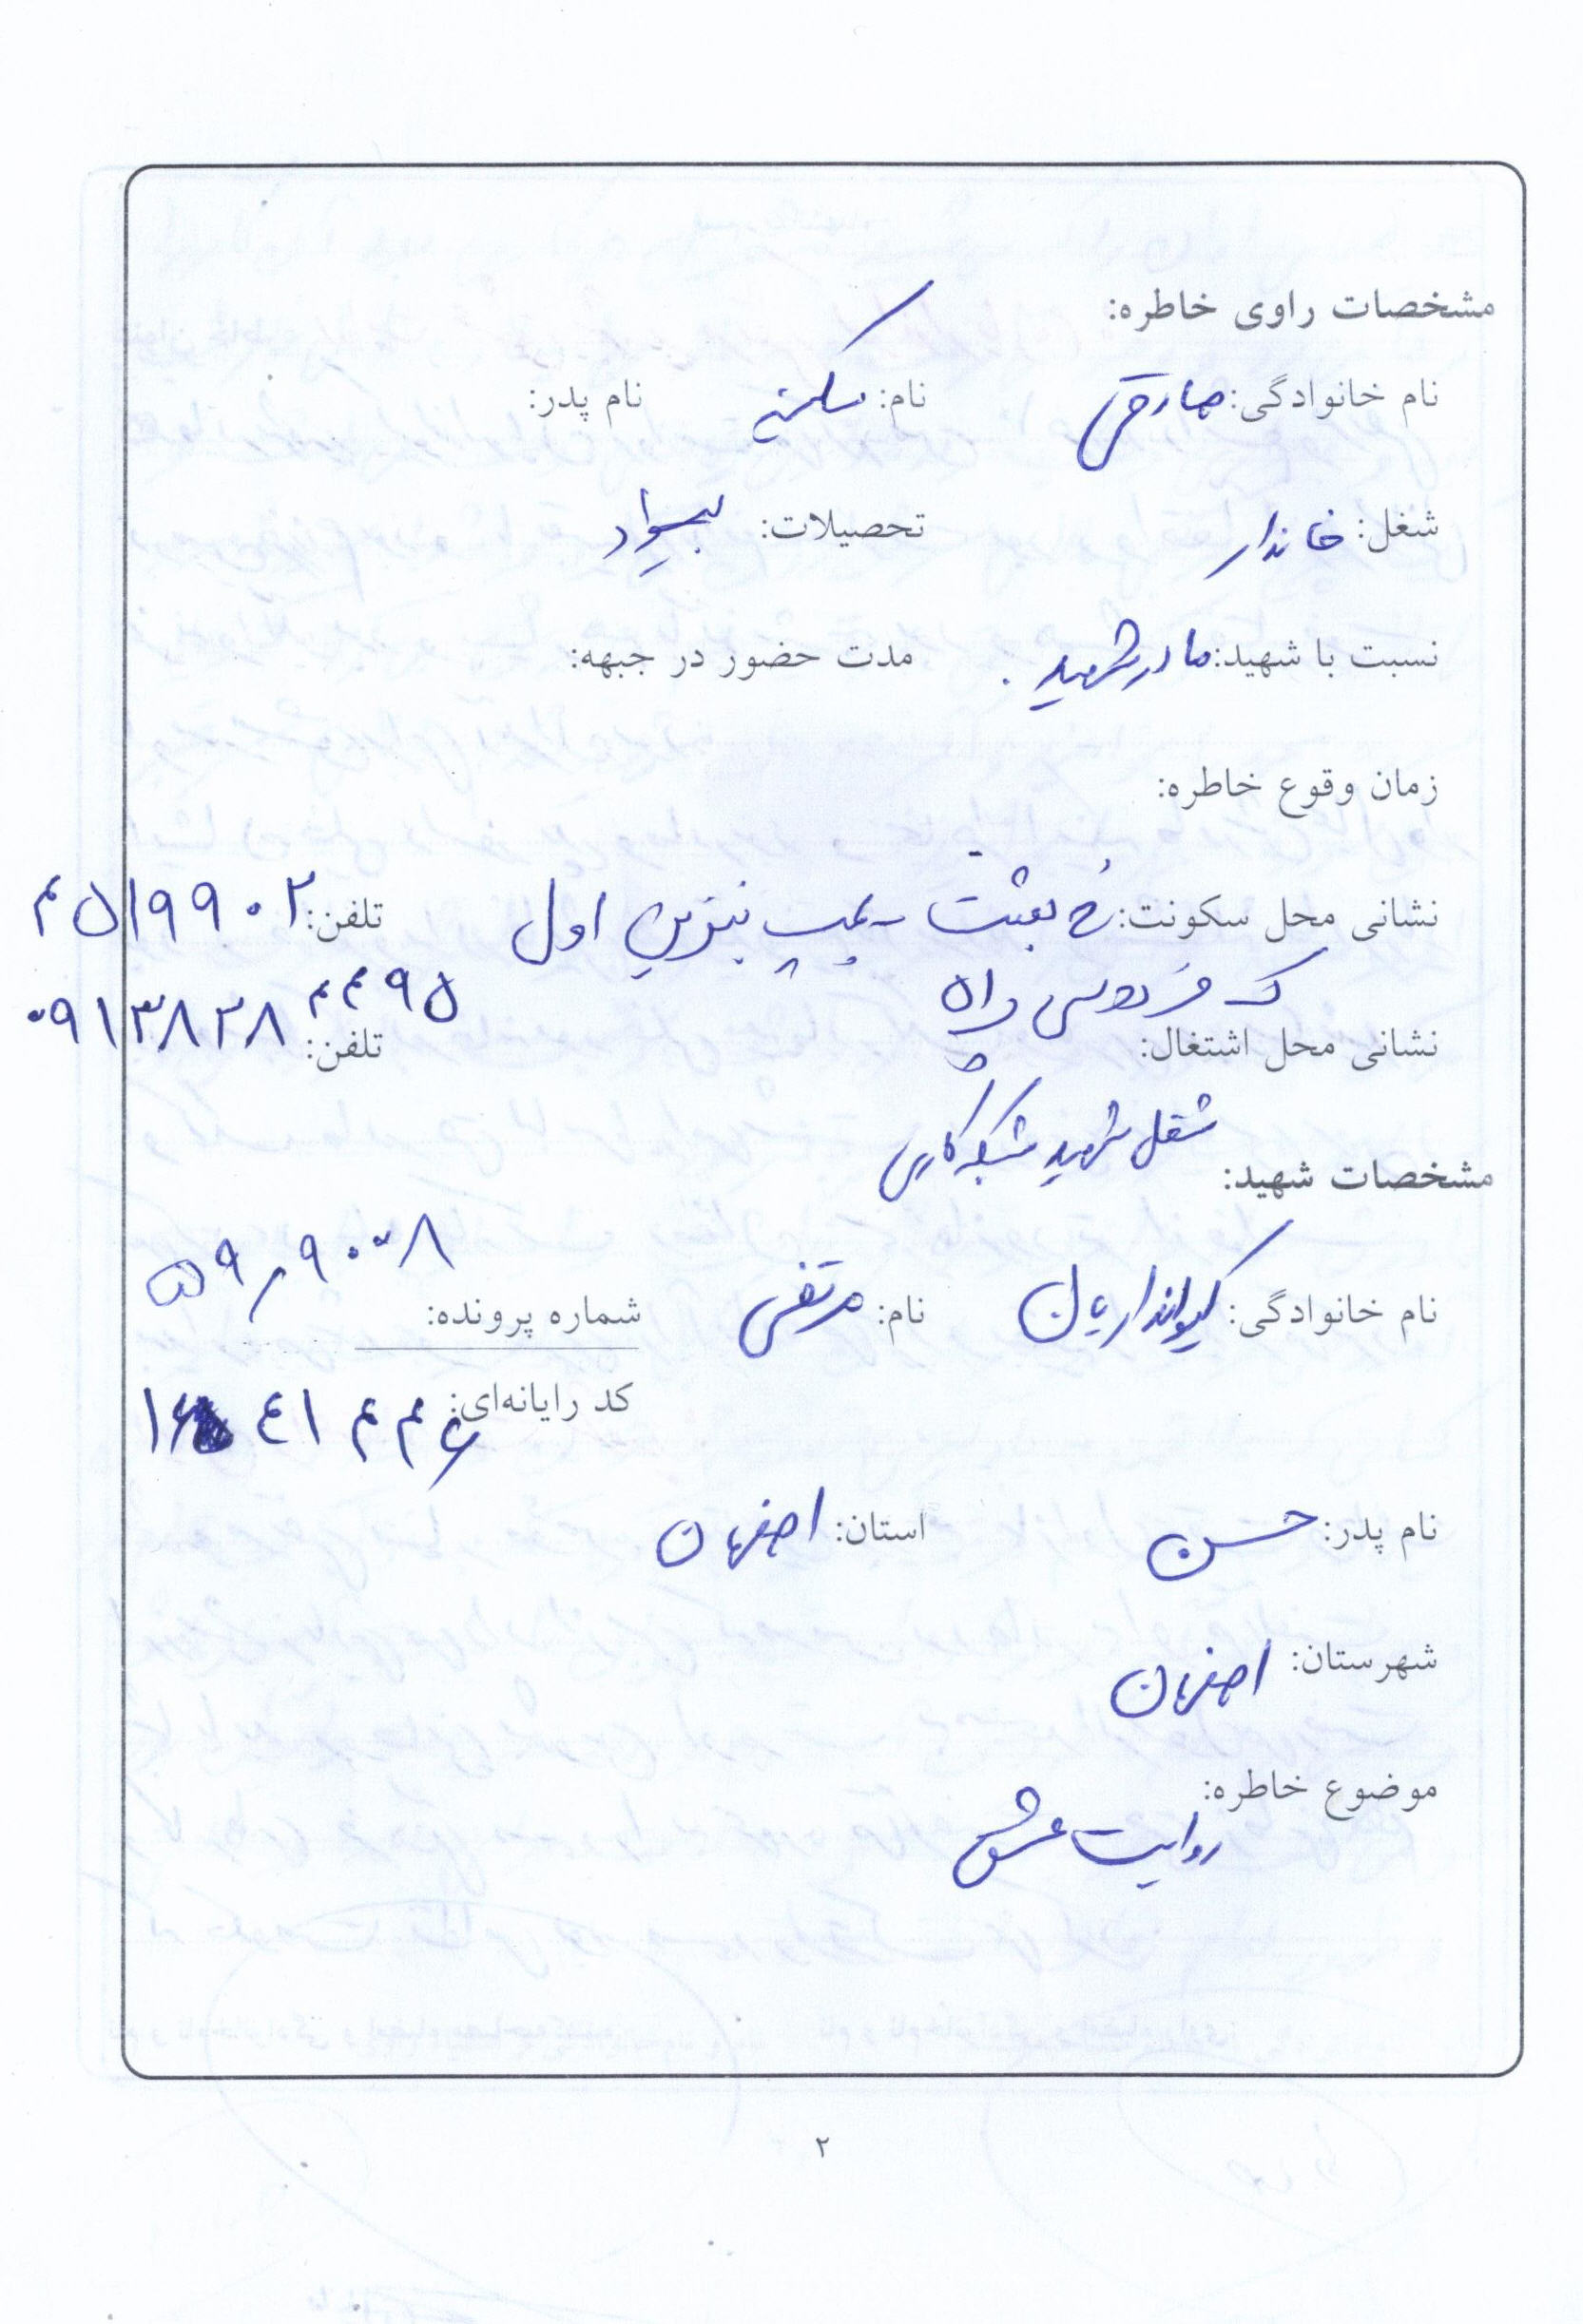 مشخصات راوی خاطره:
نام خانوادگی: صادقی نام: سکینه نام پدر:
شغل: خاندار تحصیلات: بیسواد
نسبت با شهید: مادر شهید . مدت حضور در جبهه:
زمان وقوع خاطره:
نشانی محل سکونت: خ بعثت پمپ بنزین اول تلفن:
ک فردوسی پ
نشانی محل اشتغال: تلفن:
شغل شهید شبکه کاری
مشخصات شهید:
نام خانوادگی: نام: مرتضی شماره پرونده:
کد رایانه‌ای:
نام پدر: حسن استان: اصفهان
شهرستان: اصفهان
موضوع خاطره:
روایت عشق
۲